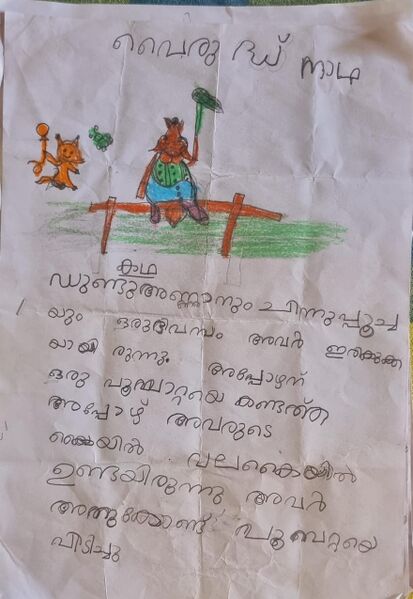 വൈരു ദ്ധ് നാഥ
കഥ
ഡുണ്ടുഅണ്ണാനും ചിന്നുപ്പൂച്ച
യും ഒരുദിവസം അവർ ഇരിക്കുക
യായി രുന്നു. അപ്പോഴന്
ഒരു പൂമ്പാറ്റയെ കണ്ടത്ത്
അപ്പോഴ് അവരുടെ
കൈയിൽ വലകൈയിൽ
ഉണ്ടയിരുന്നു അവർ
അത്തുക്കോണ്ട് പൂമ്പറ്റയെ
പിടിച്ചു